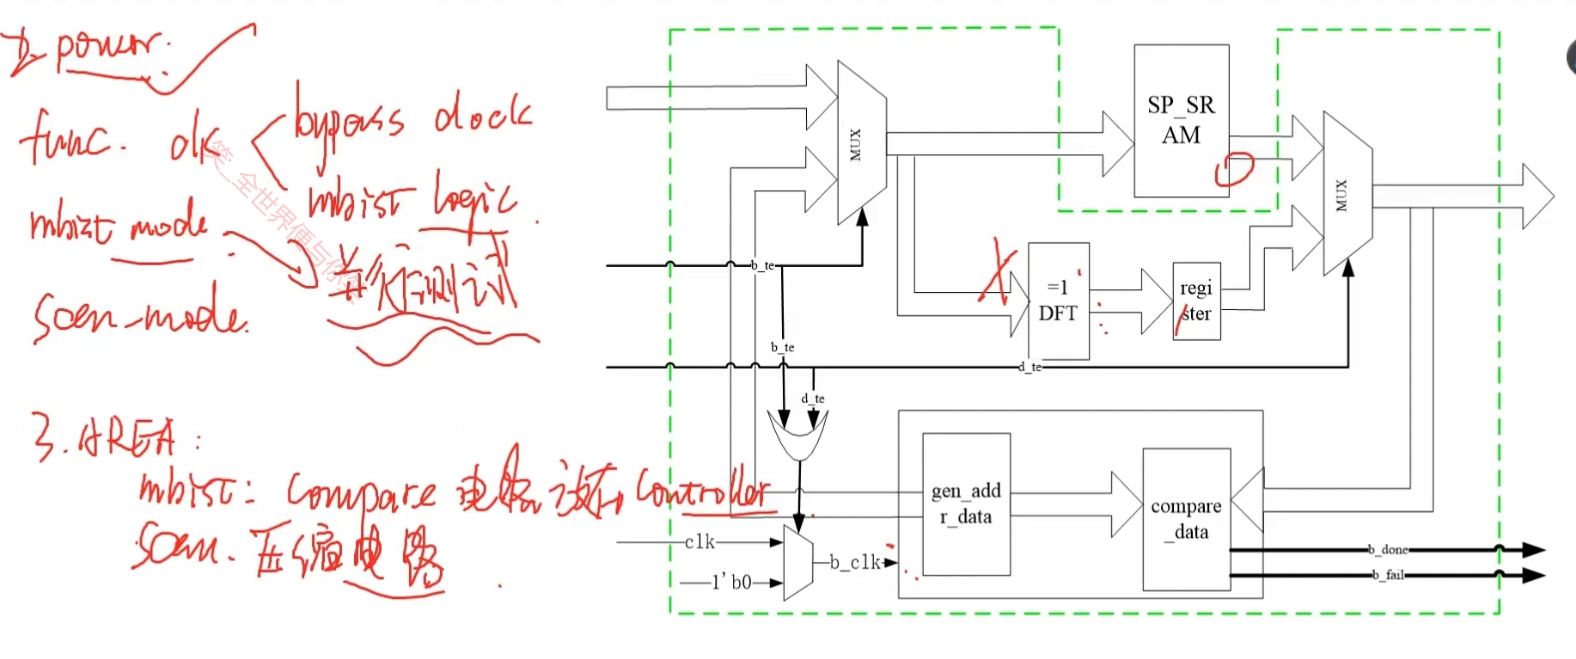 2. power.
func. clk
bypass clock
mbist logic.
mbist mode.
并行测试
scan-mode.
3. AREA:
mbist: compare 电路放在 Controller
scan. 压缩电路
笑_全世界便与你
MUX
SP_SR
AM
MUX
b_te
=1
DFT
regi
ster
b_te
d_te
d_te
gen_add
r_data
compare
_data
clk
1'b0
b_clk
b_done
b_fail